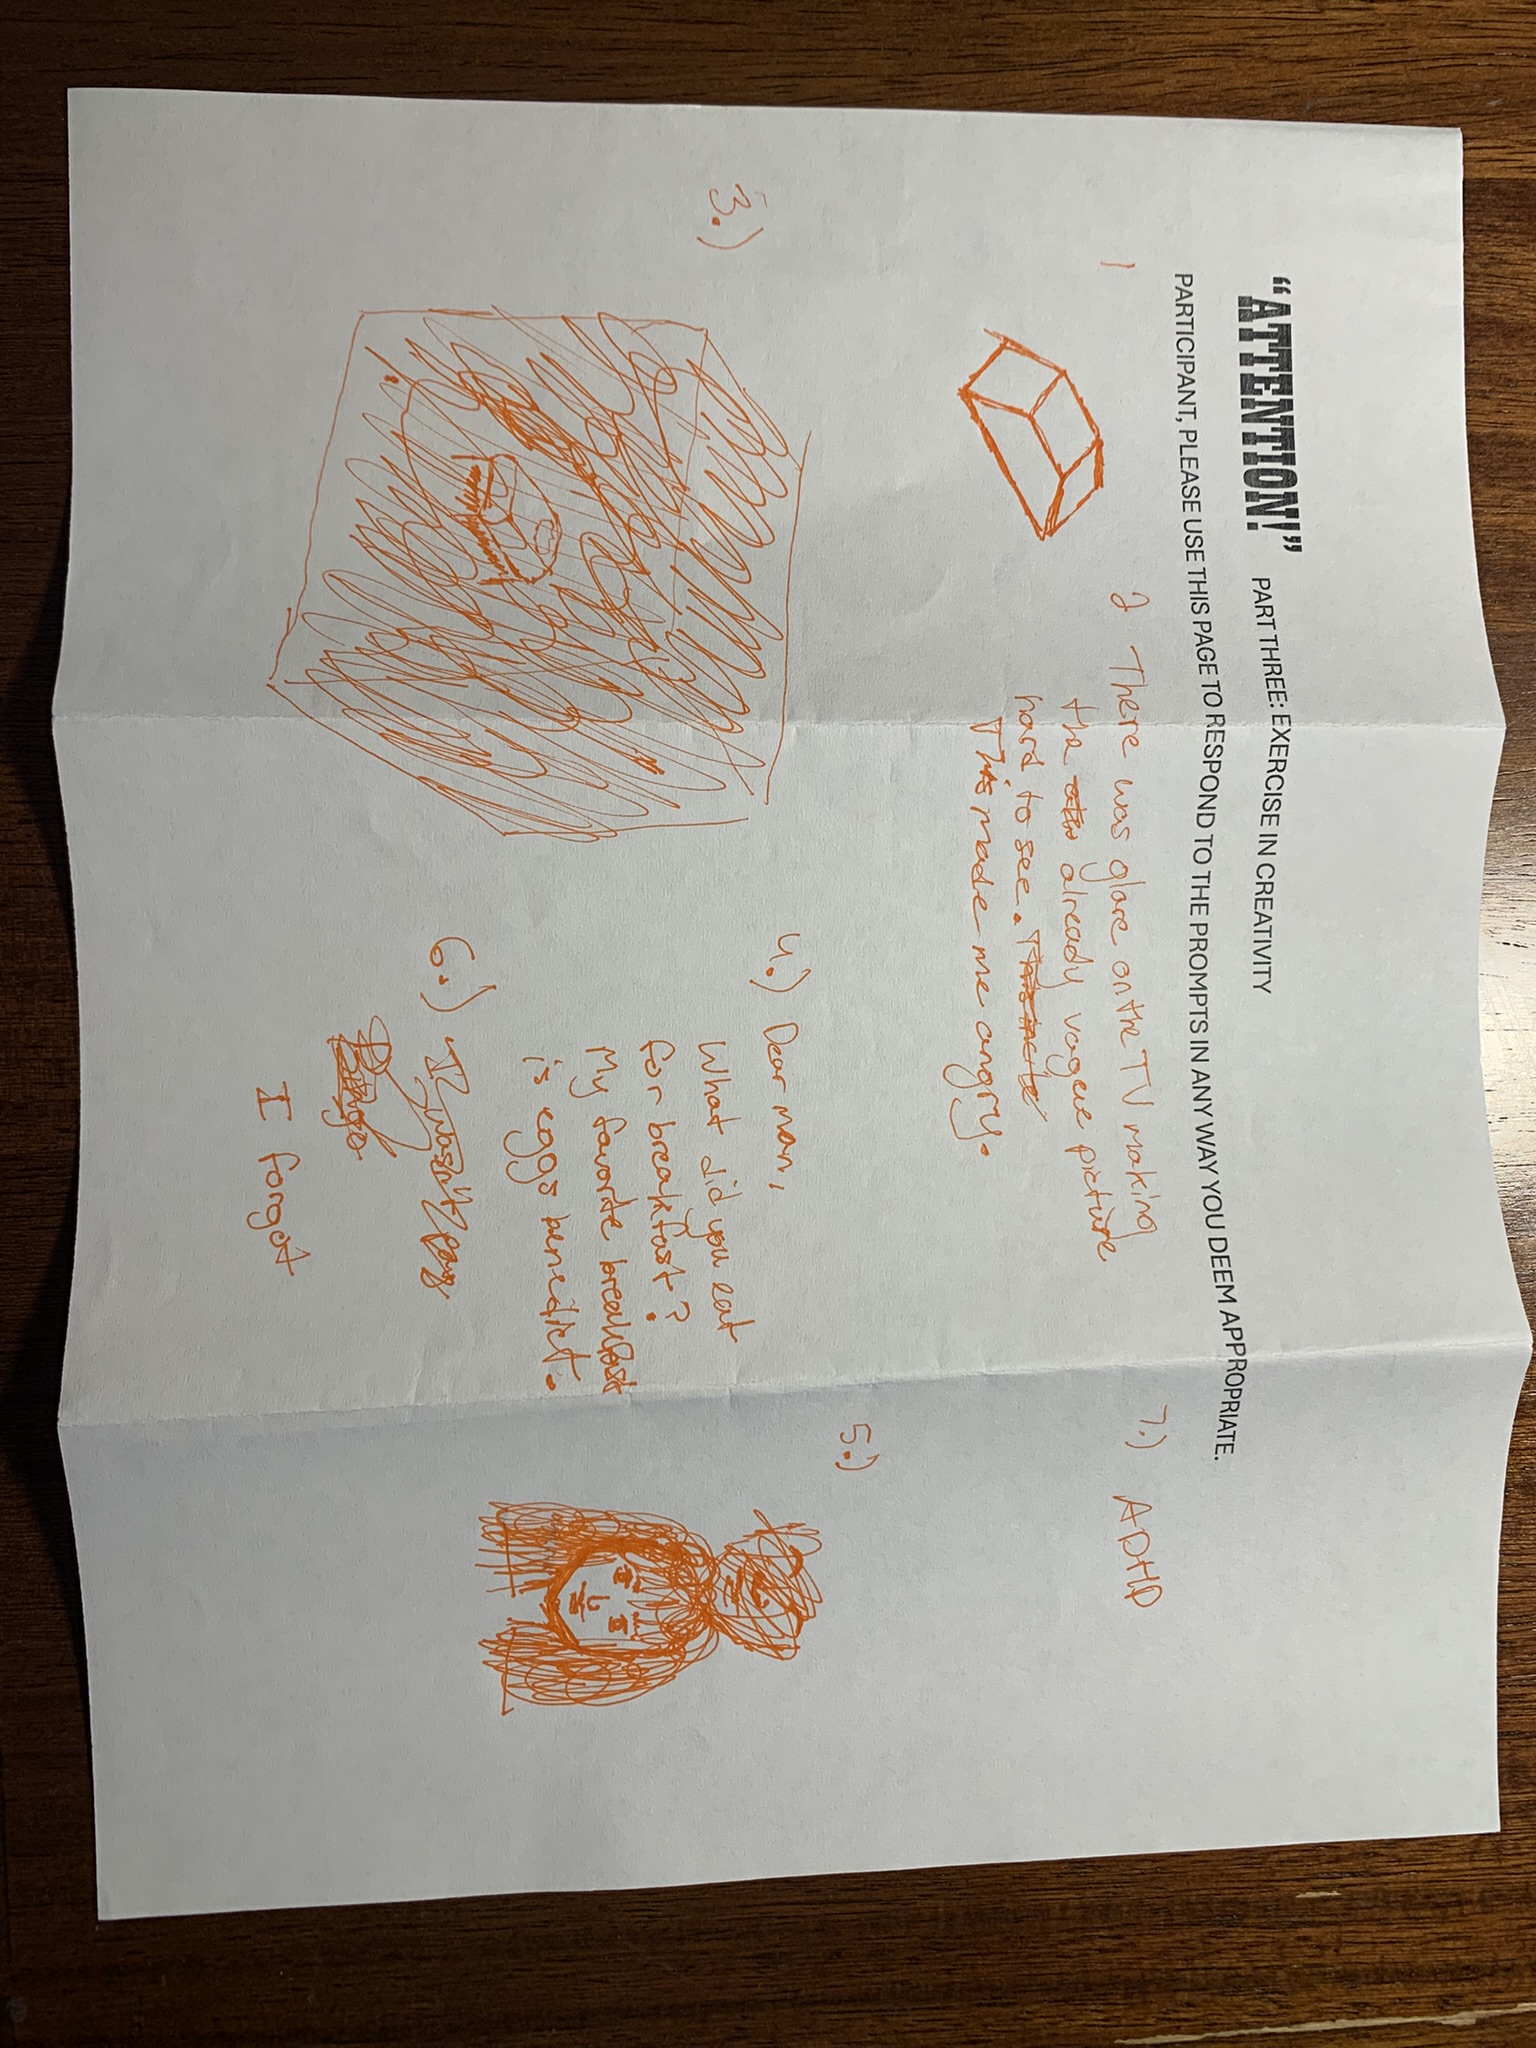 “ATTENTION!” PART THREE: EXERCISE IN CREATIVITY
PARTICIPANT, PLEASE USE THIS PAGE TO RESPOND TO THE PROMPTS IN ANY WAY YOU DEEM APPROPRIATE.
1
2 There was glare on the TV making
the already vague picture
hard to see.
This made me angry.
7.) ADHD
3.)
4.) Dear man,
What did you eat
for breakfast?
My favorite breakfast
is eggs benedict.
5.)
6.) I wasn't pay
Bingo
I forgot